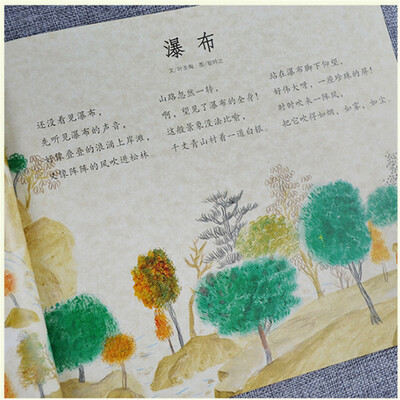 瀑布
文/叶圣陶 图/
还没看见瀑布,
先听见瀑布的声音,
好像叠叠的浪涌上岸滩,
又像阵阵的风吹进松林。
山路忽然一转,
啊,望见了瀑布的全身!
这般景象没法比喻,
千丈青山衬着一道白银。
站在瀑布脚下仰望,
好伟大呀,一座珍珠的屏!
时时吹来一阵风,
把它吹得如烟,如雾,如尘。